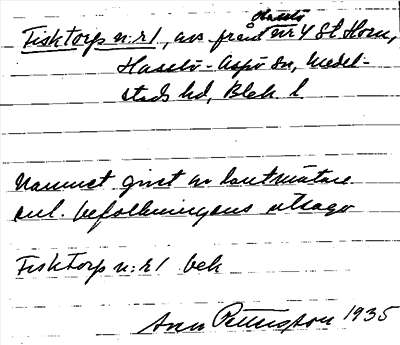 Fisktorp n:r 1, avs. från Hasslö nr 4 St. Horn,
Hasslö - Aspö sn, Medel-
stads hd, Blek. l.
Namnet givet av lantmätare
enl. befolkningens utsago
Fisktorp n:r 1 bek
Pettersson 1935